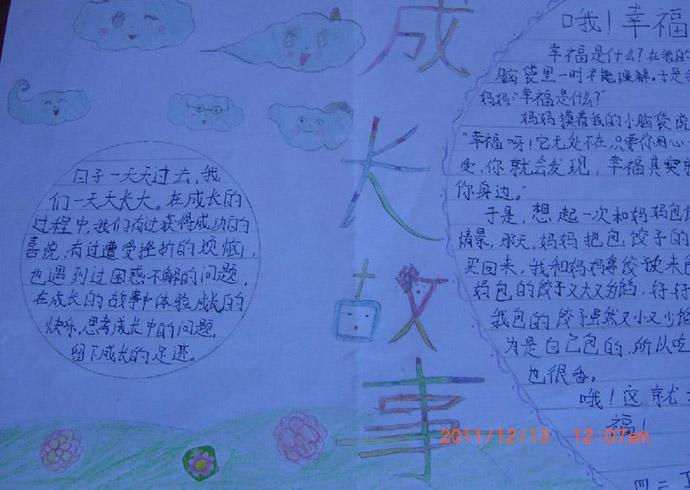 成长故事
日子一天天过去,我
们一天天长大。在成长的
过程中,我们有过获得成功的
喜悦,有过遭受挫折的烦恼,
也遇到过困惑不解的问题,
在成长的故事中体验成长的
快乐,思考成长中的问题,
留下成长的足迹。
哦!幸福
幸福是什么?在我的
脑袋里一时不能理解。于是
妈妈:“幸福是什么?”
妈妈摸着我的小脑袋说
“幸福呀!它无处不在,只要你用心
受,你就会发现,幸福其实
你身边。”
于是,想起一次和妈妈包
情景,那天,妈妈把包饺子的
买回来,我和妈妈
妈包的饺子又大又
我包的饺子虽然又小又
为是自己包的,所以吃
也很香。
哦!这就
福!
2011/12/13 12:07am